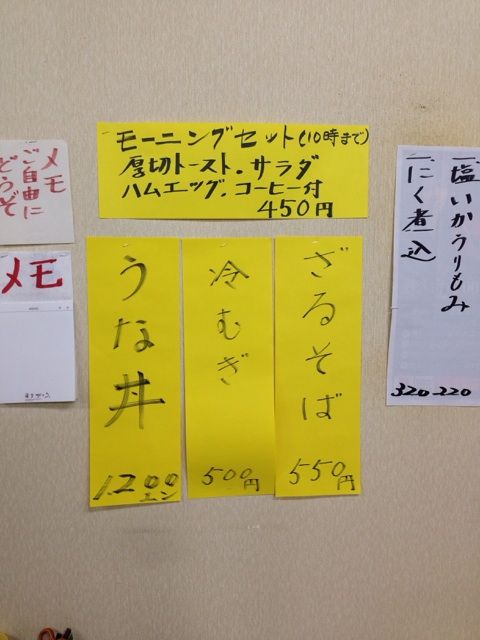 モーニングセット(10時まで)
厚切トースト.サラダ
ハムエッグ.コーヒー付
450円
ざるそば
550円
冷むぎ
500円
うな丼
1.200エン
一、塩いかうりもみ
220
一、にく煮込
320
メモ
ご自由に
どうぞ
メモ